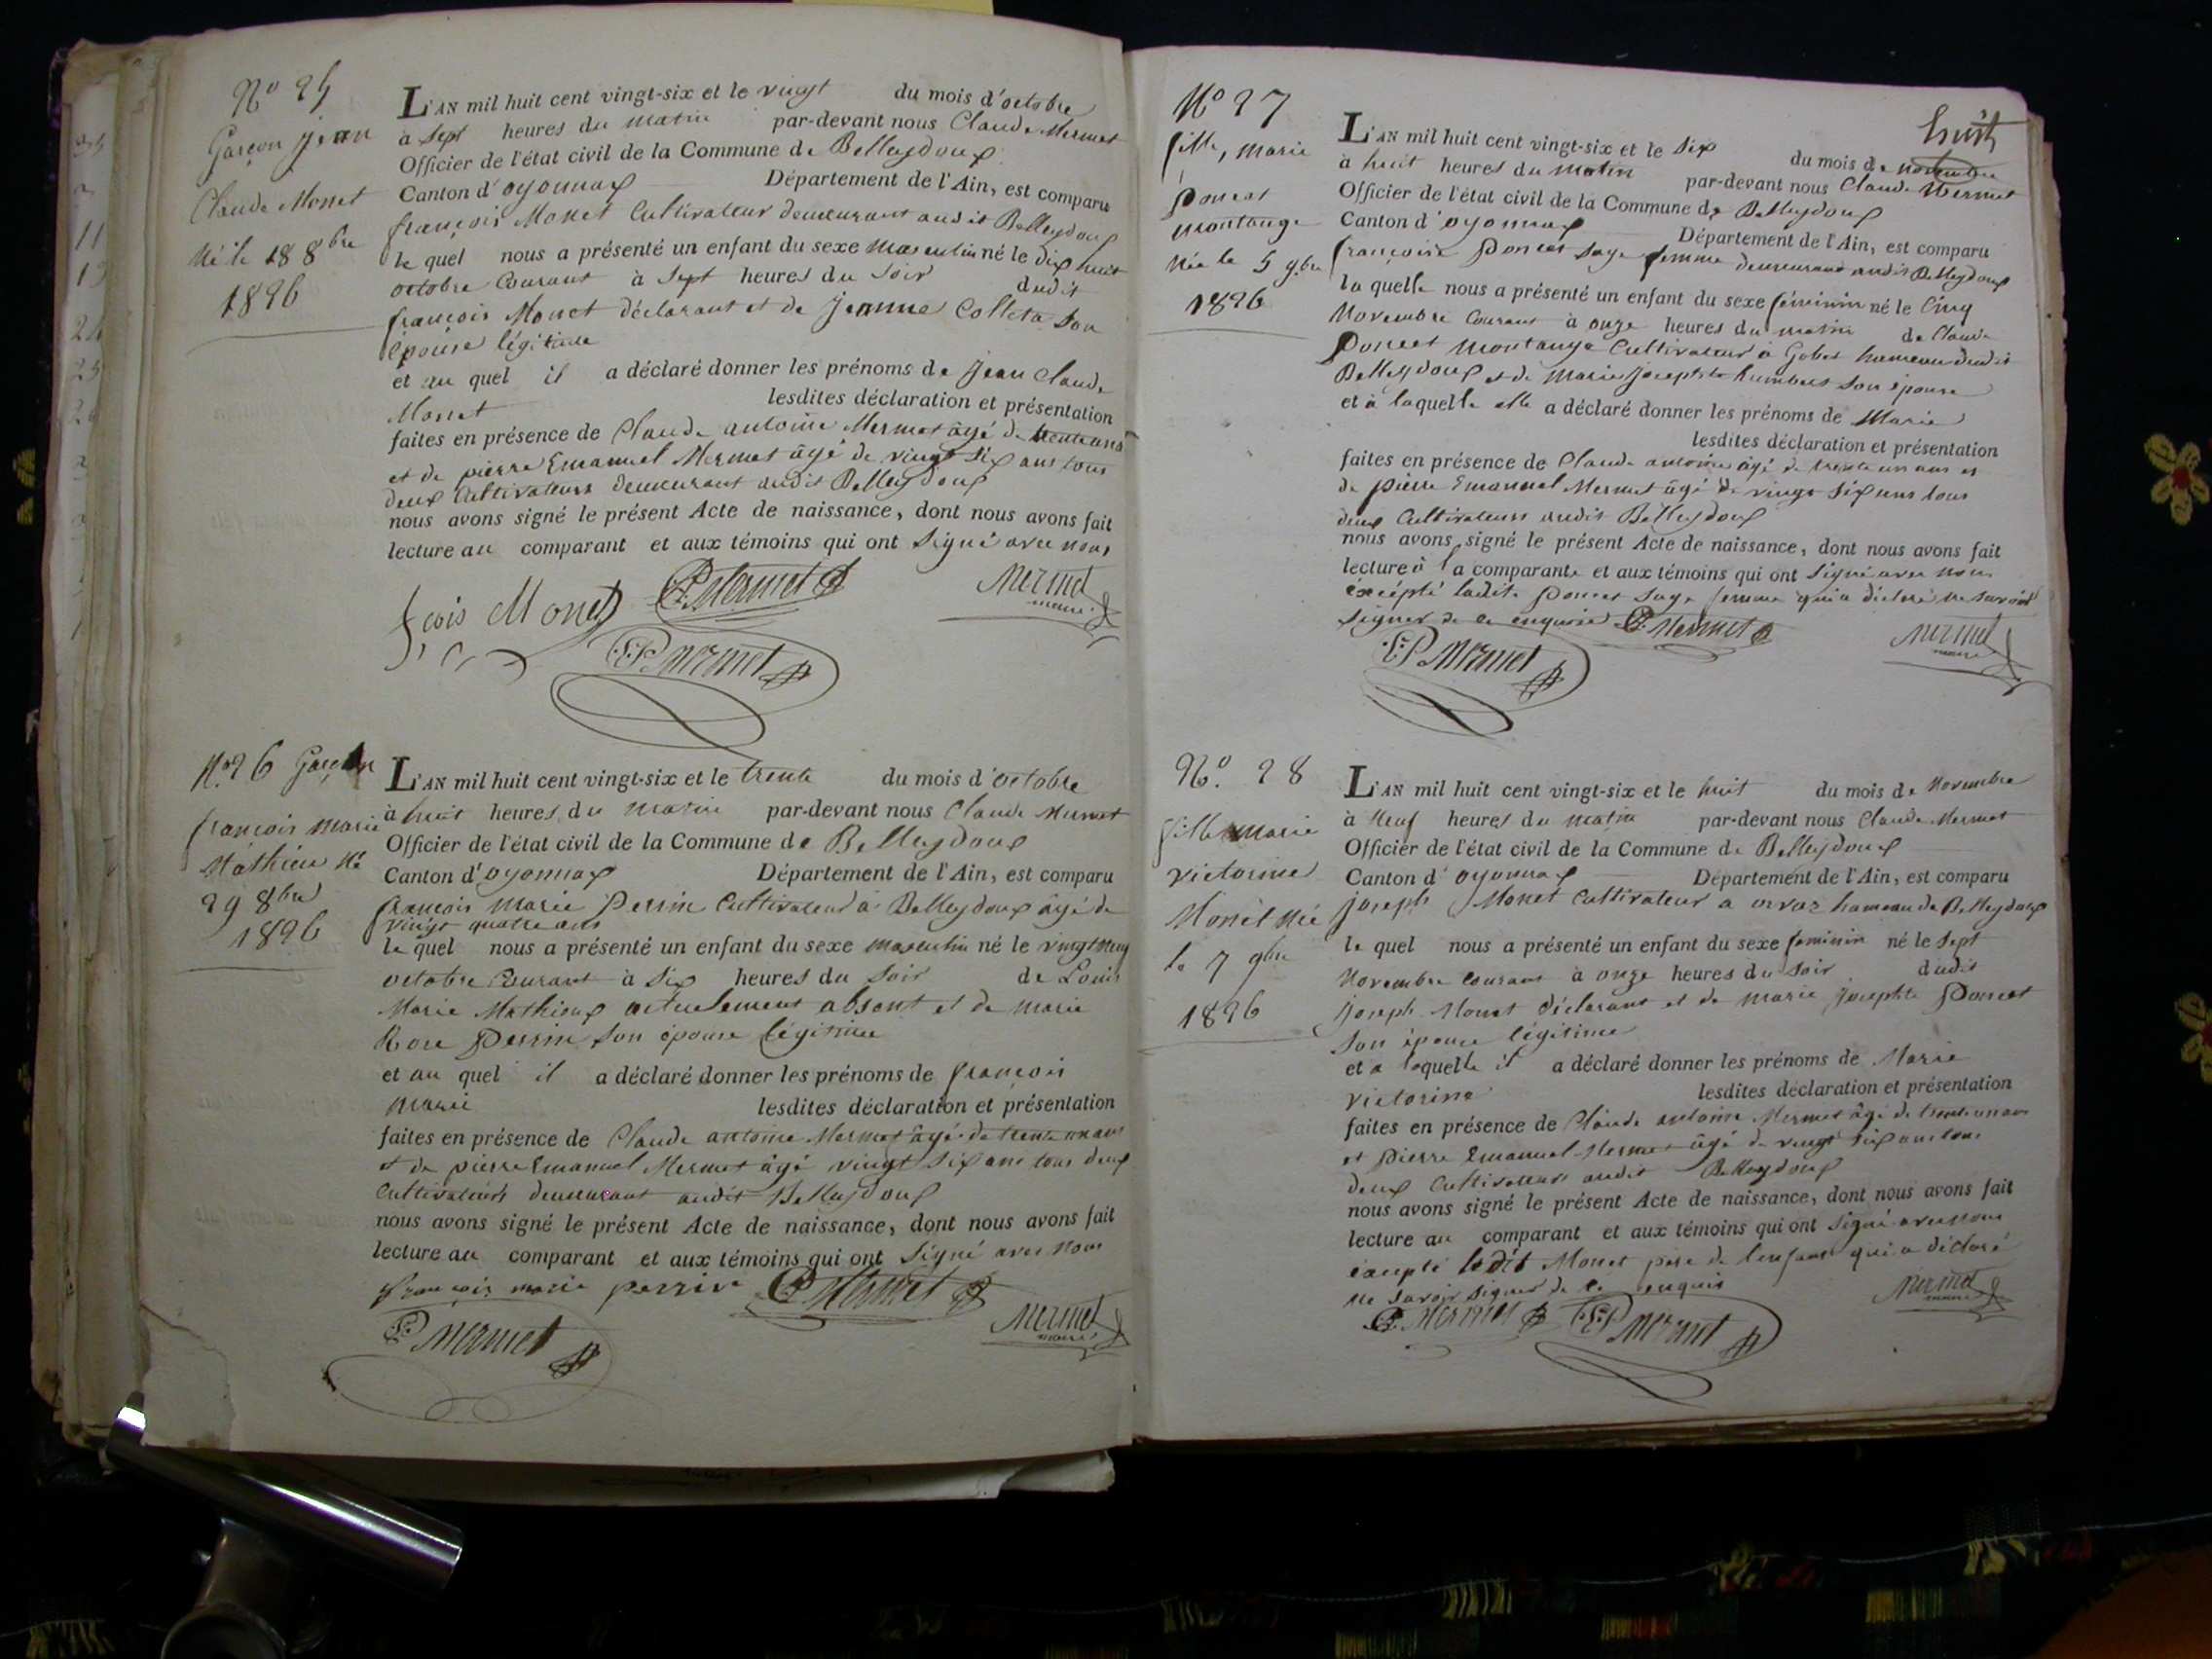 N° 25
Garçon Jean
Claude Monet
Né le 18 8bre
1826
L'AN mil huit cent vingt-six et le vingt du mois d'octobre
à sept heures du matin par-devant nous Claude Mermet
Officier de l'état civil de la Commune de Belleydoux
Canton d'oyonnax Département de l'Ain, est comparu
françois Monet Cultivateur demeurant audit Belleydoux
le quel nous a présenté un enfant du sexe masculin né le dix huit
octobre Courant à sept heures du soir dudit
françois Monet déclarant et de Jeanne Colleta son
épouse légitime
et au quel il a déclaré donner les prénoms de Jean Claude
Monet lesdites déclaration et présentation
faites en présence de Claude antoine Mermet âgé de trente ans
et de pierre Emanuel Mermet âgé de vingt six ans tous
deux Cultivateurs demeurant audit Belleydoux
nous avons signé le présent Acte de naissance, dont nous avons fait
lecture au comparant et aux témoins qui ont signé avec nous
fcois Monet Mermet Mermet
maire
Mermet
N° 26 Garçon
françois marie
Mathieu Né
29 8bre
1826
L'AN mil huit cent vingt-six et le trente du mois d'octobre
à huit heures du matin par-devant nous Claude Mermet
Officier de l'état civil de la Commune de Belleydoux
Canton d'oyonnax Département de l'Ain, est comparu
françois Marie Perrin Cultivateur à Belleydoux âgé de
vingt quatre ans
le quel nous a présenté un enfant du sexe masculin né le vingt neuf
octobre Courant à six heures du soir de Louis
Marie Mathieux actuelement absent et de marie
Rose Perrin son épouse légitime
et au quel il a déclaré donner les prénoms de françois
Marie lesdites déclaration et présentation
faites en présence de Claude antoine Mermet âgé de trente un ans
et de pierre Emanuel Mermet âgé vingt six ans tous deux
Cultivateurs demeurant audit Belleydoux
nous avons signé le présent Acte de naissance, dont nous avons fait
lecture au comparant et aux témoins qui ont signé avec nous
françois marie perrin Mermet
Mermet Mermet
maire
huit
N° 27
fille, marie
Poncet
montange
Née le 5 9bre
1826
L'AN mil huit cent vingt-six et le six du mois de novembre
à huit heures du matin par-devant nous Claude Mermet
Officier de l'état civil de la Commune de Belleydoux
Canton d'oyonnax Département de l'Ain, est comparu
françoise Poncet sage femme demeurant audit Belleydoux
la quelle nous a présenté un enfant du sexe féminin né le cinq
Novembre Courant à onze heures du matin de Claude
Poncet Montange Cultivateur à Gobet hameau dudit
Belleydoux et de Marie Josephte humbert son épouse
et à laquelle elle a déclaré donner les prénoms de Marie
lesdites déclaration et présentation
faites en présence de Claude antoine âgé de trente un ans et
de pierre Emanuel Mermet âgé de vingt six ans tous
deux Cultivateurs audit Belleydoux
nous avons signé le présent Acte de naissance, dont nous avons fait
lecture à la comparante et aux témoins qui ont signé avec nous
excépté ladite Poncet sage femme qui a déclaré ne savoir
signer de ce enquise Mermet Mermet
maire
Mermet
N° 28
fille Marie
victorine
Monet Née
le 7 9bre
1826
L'AN mil huit cent vingt-six et le huit du mois de Novembre
à Neuf heures du matin par-devant nous Claude Mermet
Officier de l'état civil de la Commune de Belleydoux
Canton d'oyonnax Département de l'Ain, est comparu
joseph Monet Cultivateur a orvaz hameau de Belleydoux
le quel nous a présenté un enfant du sexe feminin né le sept
Novembre Courant à onze heures du soir dudit
joseph Monet déclarant et de marie josephte Poncet
son épouse légitime
et a laquelle il a déclaré donner les prénoms de Marie
victorine lesdites déclaration et présentation
faites en présence de Claude antoine Mermet âgé de trente un ans
et pierre Emanuel Mermet âgé de vingt six ans tous
deux Cultivateurs audit Belleydoux
nous avons signé le présent Acte de naissance, dont nous avons fait
lecture au comparant et aux témoins qui ont signé avec nous
excepté ledit Monet père de l'enfant qui a déclaré
ne savoir signer de ce enquis Mermet
maire
Mermet Mermet